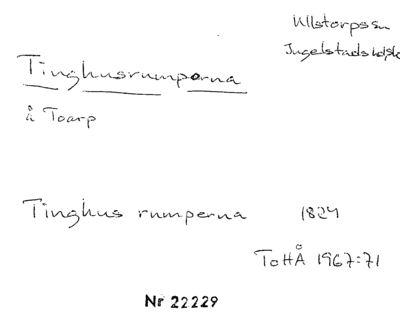 Ullstorps sn
Ingelstads hd, Sk
Tinghusrumporna
å Toarp
Tinghus rumperna 1824
ToHÅ 1967:71
Nr 22229